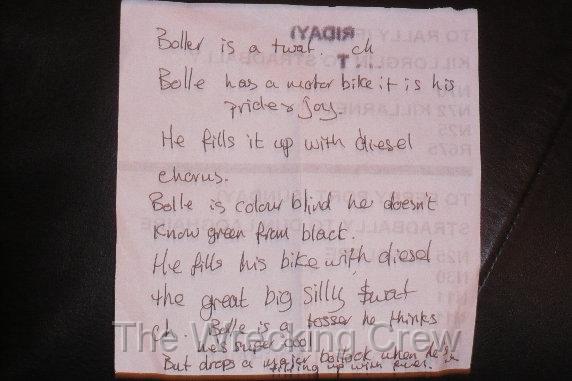 Boller is a twat. ch
Bolle has a motor bike it is his
pride & Joy.
He fills it up with diesel
chorus.
Bolle is colour blind he doesn't
Know green from black.
He fills his bike with diesel
the great big silly twat
ch. Bolle is a tosser he thinks
he's super cool
But drops a major bollock when he's
filling up with fuel.
The Wrecking Crew
RIDAY)
TO RALLY
KILLORGLIN TO STRADBALL
N72 KILLARNEY
N25
R675
STRADBALL
N25
N30
N11